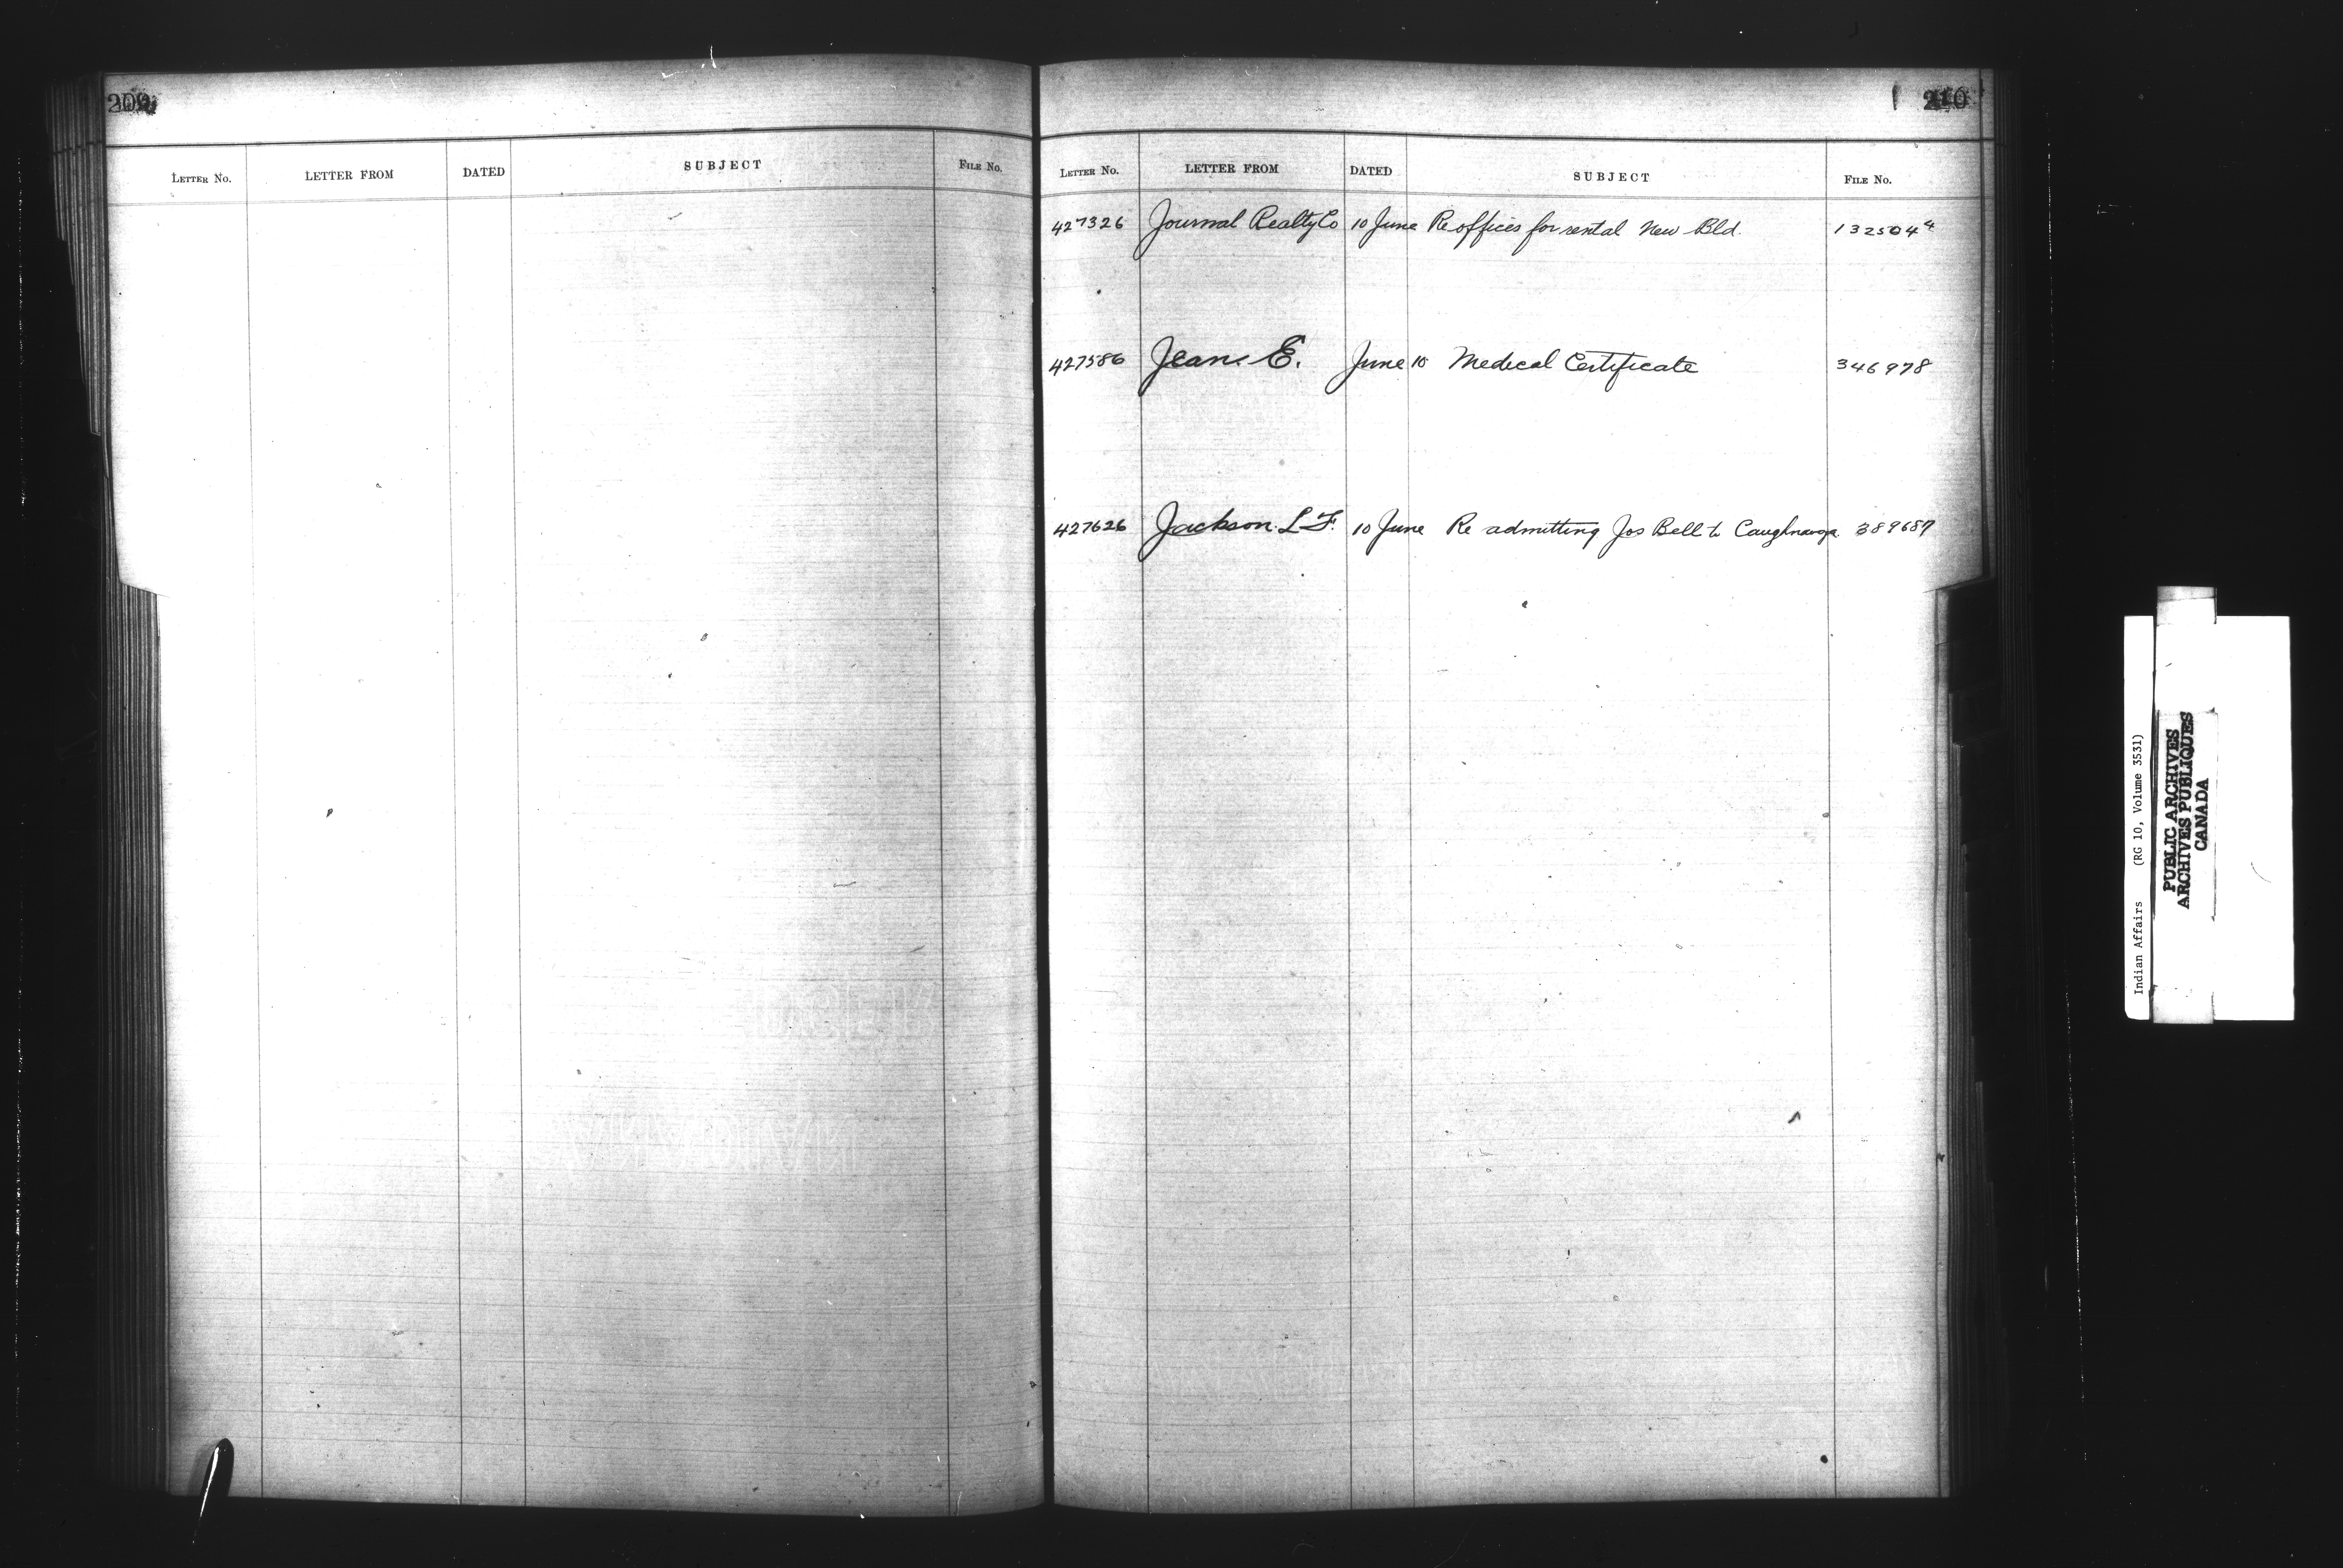 209
LETTER NO. LETTER FROM DATED SUBJECT FILE NO.
210
LETTER NO. LETTER FROM DATED SUBJECT FILE NO.
427326 Journal Realty Co 10 June Re offices for rental New Bld. 132504 4
427586 Jean. E. June 10 Medical Certificate 346978
427626 Jackson. L F. 10 June Re admitting Jos Bell to Caughnawga 389687
Indian Affairs (RG 10, Volume 3531)
PUBLIC ARCHIVES
ARCHIVES PUBLIQUES
CANADA